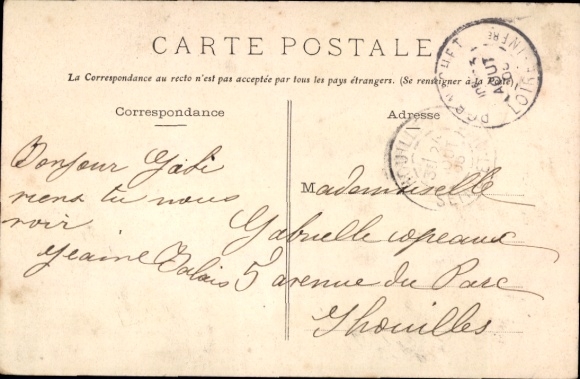 CARTE POSTALE
La Correspondance au recto n'est pas acceptée par tous les pays étrangers. (Se renseigner à la Poste)
Correspondance
Adresse
PORNICHET LOIRE INFRE
AOUT
Bonjour Gabi
viens tu nous
voir
Jeanne Palais
Mademoiselle
Gabrielle Copeaux
5 avenue du Parc
Houilles